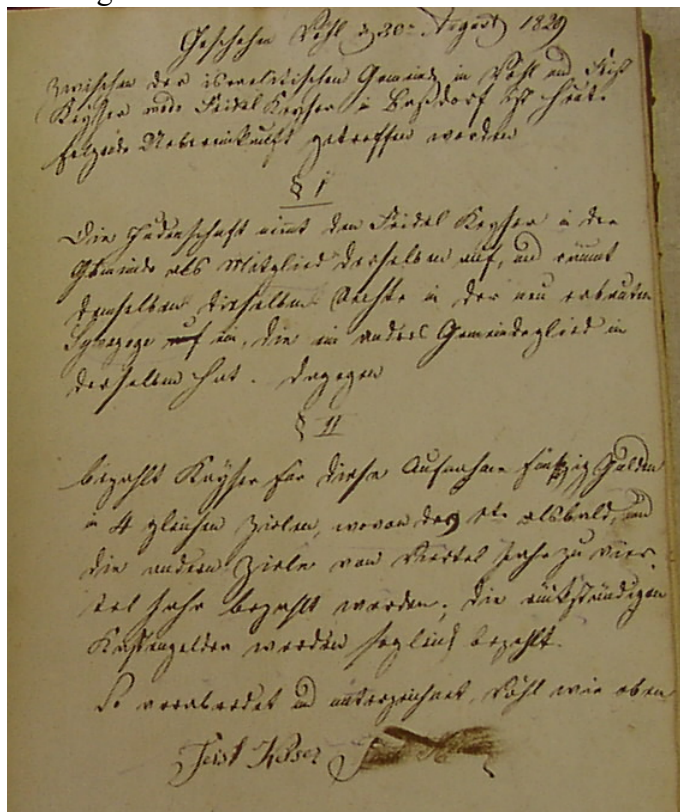 Geschehen Vöhl d 30ten August 1829
Zwischen der israelitischen Gemeinde in Vöhl und Feist
Keyser modo Feidel Keyser in Basdorf ist heute
folgende Uebereinkunft getroffen worden
§ I
Die Judenschaft nimt den Feidel Keyser in der
Gemeinde als Mitglied derselben auf, und räumt
demselben dieselben Rechte in der neu erbauten
Synagoge ein, die ein anders Gemeindeglied in
derselben hat. Dagegen
§ II
bezahlt Keyser für diese Aufnahme funfzig Gulden
in 4 gleichen Zielen, wovon das alsbald, und
die andern Ziele von Viertel Jahr zu vier-
tel Jahr bezahlt werden; die rückständigen
Kassengelder werden sogleich bezahlt.
So verabredet und unterzeichnet, Vöhl wie oben
Feist Keiser